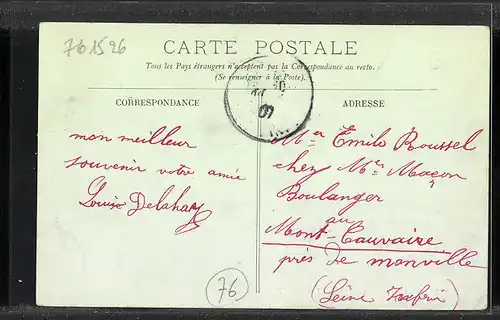 761526
CARTE POSTALE
Tous les Pays étrangers n'acceptent pas la Correspondance au recto.
(Se renseigner à la Poste).
CORRESPONDANCE
mon meilleur
souvenir votre amie
Louise Delahay
ADRESSE
Mer Émile Roussel
chez Mer Maçon
Boulanger
au
Mont-Cauvaire
près de monville
(Seine Inferi
07
76